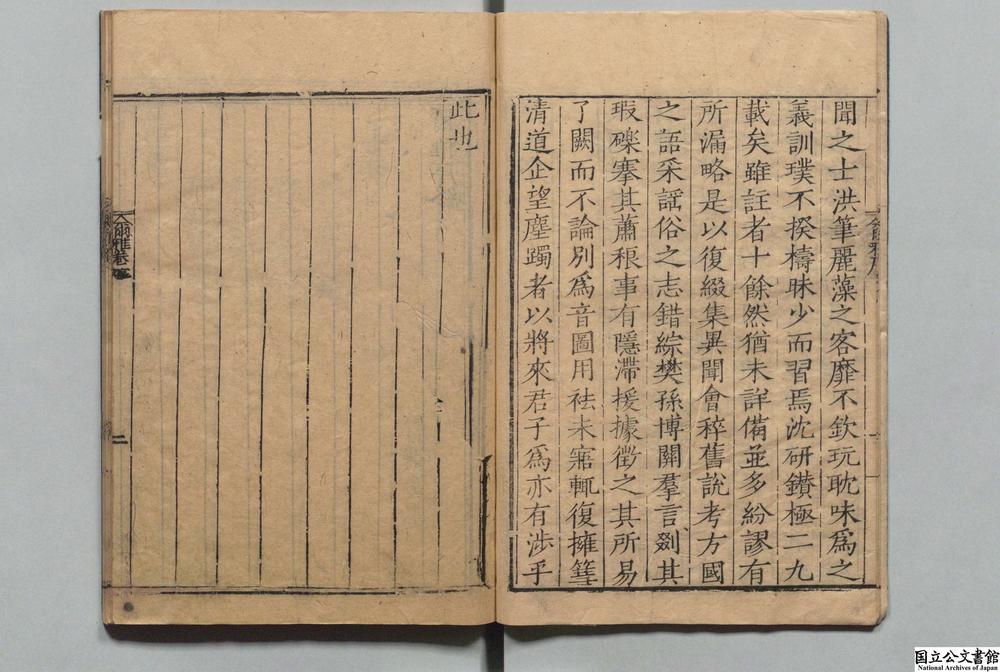 聞之士洪筆麗藻之客靡不欽玩耽味爲之
義訓璞不揆檮昧少而習焉沈研鑚極二九
載矣雖註者十餘然猶未詳備並多紛謬有
所漏略是以復綴集異聞會稡舊說考方國
之語采謡俗之志錯綜樊孫博關羣言剟其
瑕礫搴其蕭稂事有隱滯援據徵之其所易
了闕而不論別爲音圖用祛未寤輒復擁篲
清道企望塵躅者以將來君子爲亦有涉乎
此也
爾雅卷
二
国立公文書館
National Archives of Japan